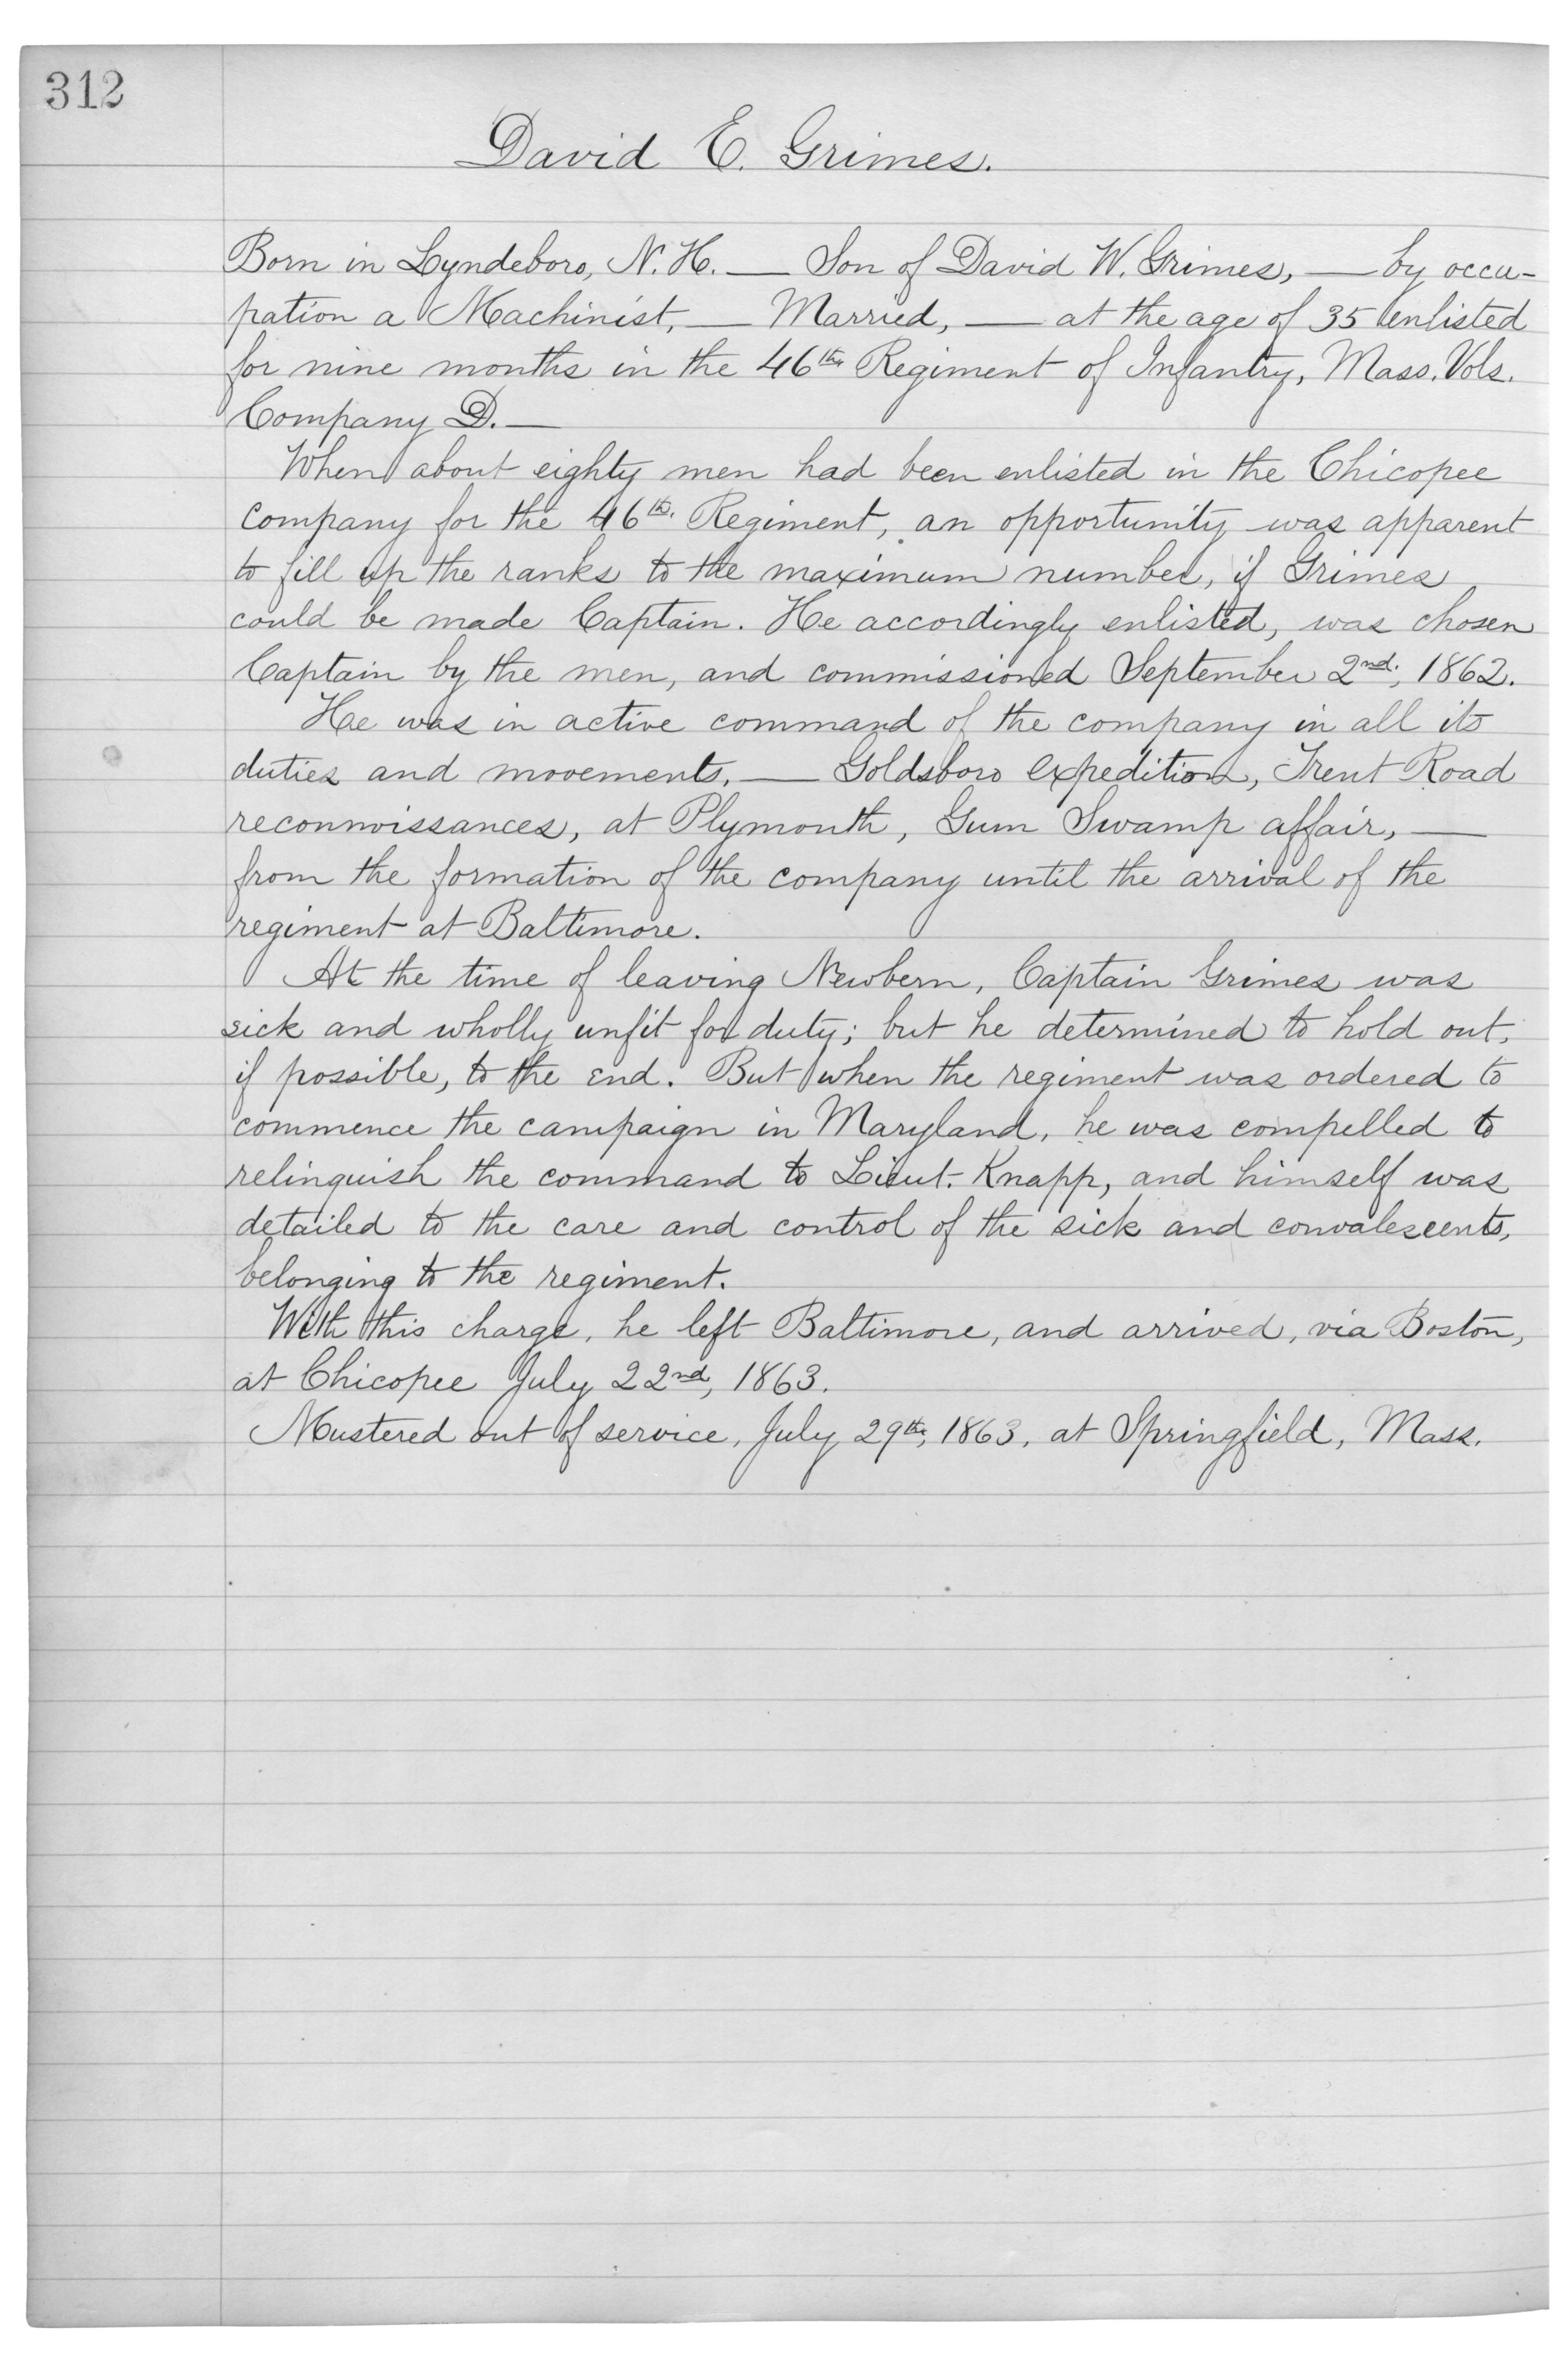 312
David E. Grimes.
Born in Lyndeboro, N. H. — Son of David W. Grimes, — by occu-
pation a Machinist, — Married, — at the age of 35 enlisted
for nine months in the 46th Regiment of Infantry, Mass. Vols.
Company D. —
When about eighty men had been enlisted in the Chicopee
company for the 46th. Regiment, an opportunity was apparent
to fill up the ranks to the maximum number, if Grimes
could be made Captain. He accordingly enlisted, was chosen
Captain by the men, and commissioned September 2nd, 1862.
He was in active command of the company in all its
duties and movements, — Goldsboro expedition, Trent Road
reconnoissances, at Plymouth, Gum Swamp affair, —
from the formation of the company until the arrival of the
regiment at Baltimore.
At the time of leaving Newbern, Captain Grimes was
sick and wholly unfit for duty; but he determined to hold out,
if possible, to the end. But when the regiment was ordered to
commence the campaign in Maryland, he was compelled to
relinquish the command to Lieut. Knapp, and himself was
detailed to the care and control of the sick and convalescents,
belonging to the regiment.
With this charge, he left Baltimore, and arrived, via Boston,
at Chicopee July 22nd, 1863.
Mustered out of service, July 29th, 1863, at Springfield, Mass.